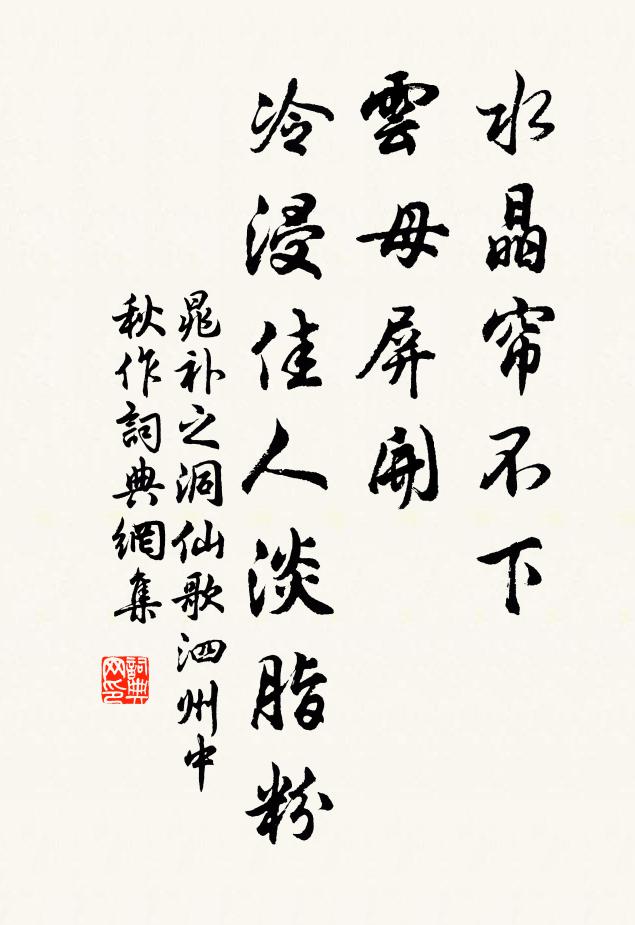 水晶帘不下
雲母屏開
冷浸佳人淡脂粉
晁补之洞仙歌泗州中
秋作詞典網集
詞典
网印